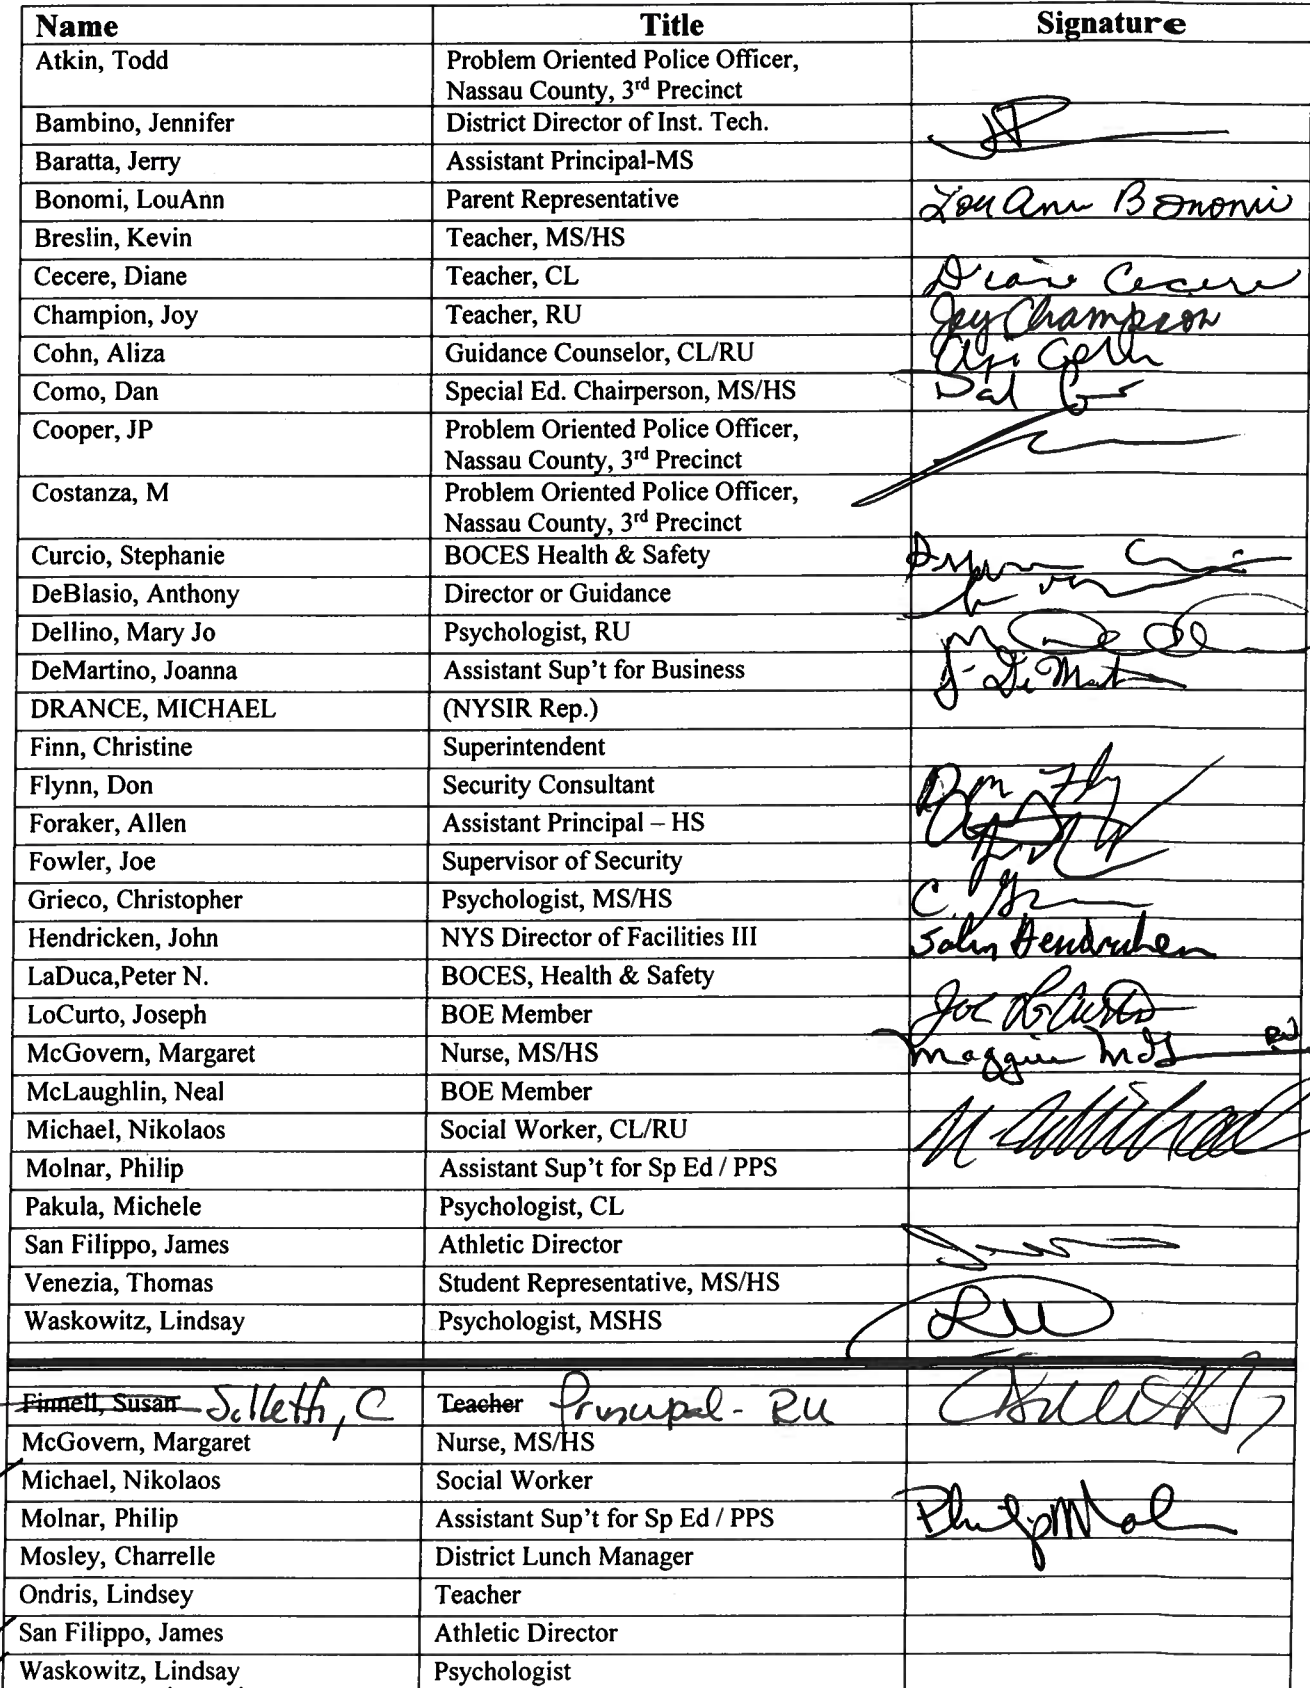 Name Title Signature
Atkin, Todd Problem Oriented Police Officer,
Nassau County, 3rd Precinct
Bambino, Jennifer District Director of Inst. Tech.
Baratta, Jerry Assistant Principal-MS
Bonomi, LouAnn Parent Representative LouAnn Bonomi
Breslin, Kevin Teacher, MS/HS
Cecere, Diane Teacher, CL Diane Cecere
Champion, Joy Teacher, RU Joy Champion
Cohn, Aliza Guidance Counselor, CL/RU
Como, Dan Special Ed. Chairperson, MS/HS
Cooper, JP Problem Oriented Police Officer,
Nassau County, 3rd Precinct
Costanza, M Problem Oriented Police Officer,
Nassau County, 3rd Precinct
Curcio, Stephanie BOCES Health & Safety
DeBlasio, Anthony Director or Guidance
Dellino, Mary Jo Psychologist, RU
DeMartino, Joanna Assistant Sup't for Business
DRANCE, MICHAEL (NYSIR Rep.)
Finn, Christine Superintendent
Flynn, Don Security Consultant
Foraker, Allen Assistant Principal – HS
Fowler, Joe Supervisor of Security
Grieco, Christopher Psychologist, MS/HS
Hendricken, John NYS Director of Facilities III John Hendricken
LaDuca,Peter N. BOCES, Health & Safety
LoCurto, Joseph BOE Member Joe LoCurto
McGovern, Margaret Nurse, MS/HS Maggie McG RN
McLaughlin, Neal BOE Member
Michael, Nikolaos Social Worker, CL/RU
Molnar, Philip Assistant Sup't for Sp Ed / PPS
Pakula, Michele Psychologist, CL
San Filippo, James Athletic Director
Venezia, Thomas Student Representative, MS/HS
Waskowitz, Lindsay Psychologist, MSHS LW
Finnell, Susan Silletti, C Teacher Principal - RU
McGovern, Margaret Nurse, MS/HS
Michael, Nikolaos Social Worker
Molnar, Philip Assistant Sup't for Sp Ed / PPS
Mosley, Charrelle District Lunch Manager
Ondris, Lindsey Teacher
San Filippo, James Athletic Director
Waskowitz, Lindsay Psychologist